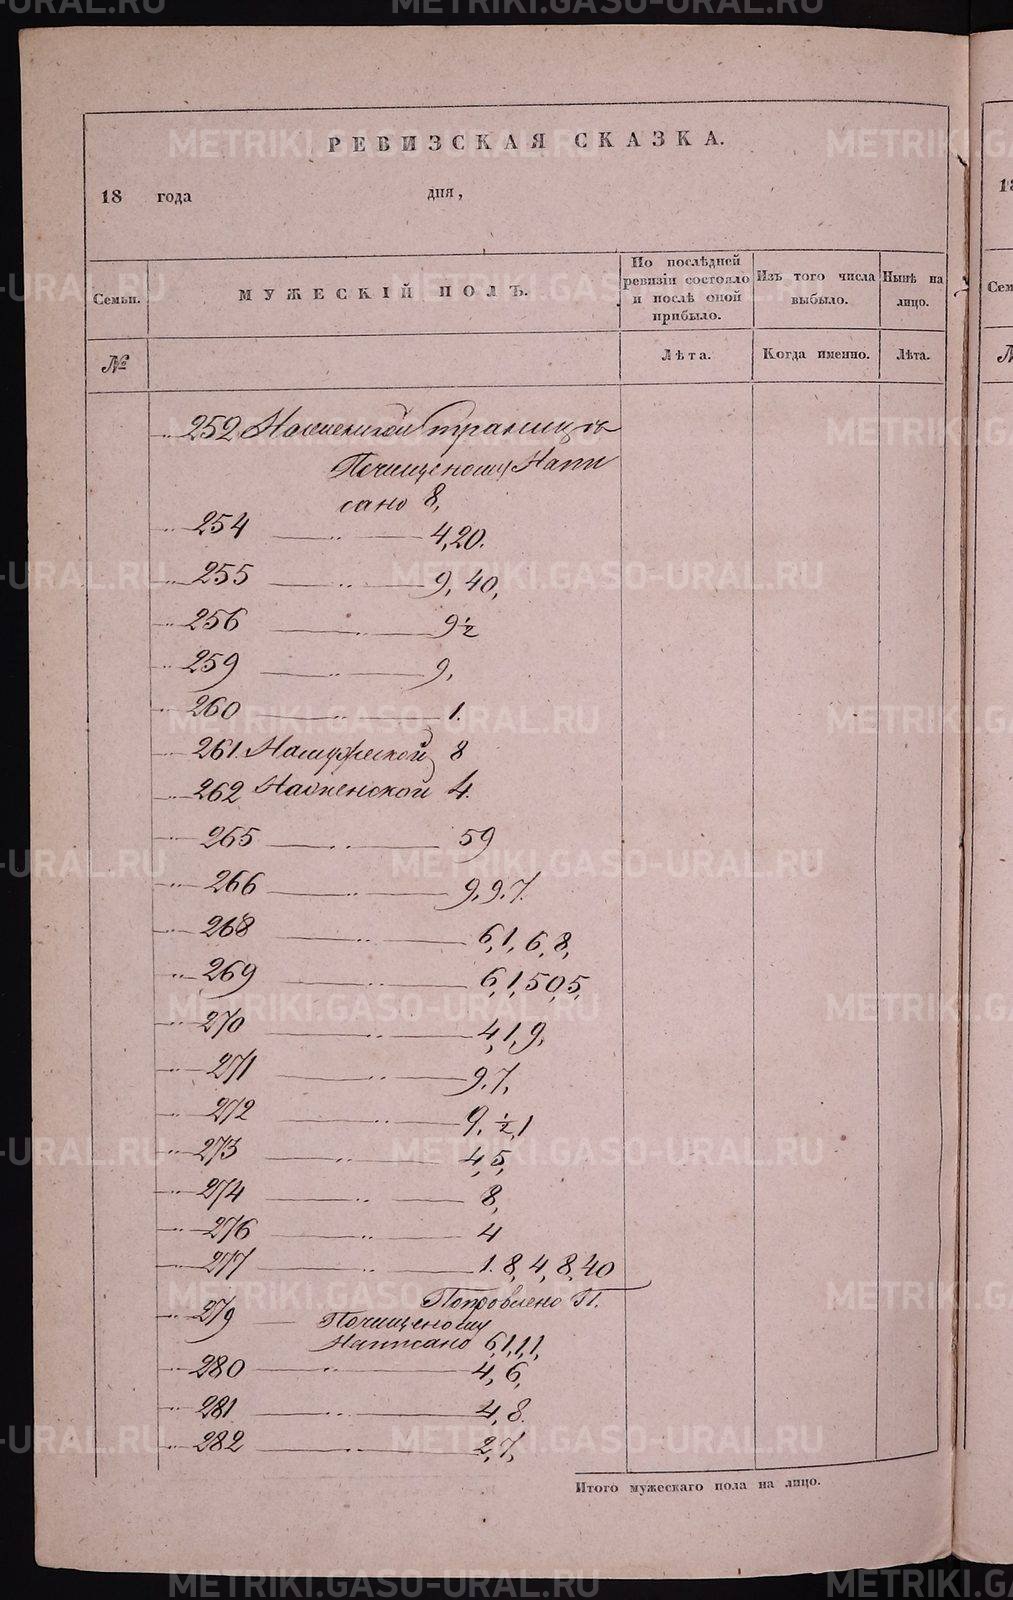 РЕВИЗСКАЯ СКАЗКА.
18 года дня,
Семьи.
МУЖЕСКІЙ ПОЛЪ.
По послѣдней ревизіи состояло и послѣ оной прибыло.
Изъ того числа выбыло.
Нынѣ на лицо.
№
Лѣта.
Когда именно.
Лѣта.
252 Наженской Страницѣ
Почищеному Напи
сано 8,
254 4,20.
255 9, 40,
256 9 ½
259 9,
260 1.
261. Намужеской 8
262 Наженской 4.
265 59
266 9, 9. 7.
268 6, 1, 6, 8,
269 6, 1, 50, 5,
270 4, 1, 9,
271 9. 7,
272 9, ½, 1
273 4, 5,
274 8,
276 4
277 1. 8, 4, 8, 40
Поправлено П.
279 Почищеному
Написано 6, 1, 1, 1,
280 4, 6,
281 4, 8.
282 2, 7,
Итого мужескаго пола на лицо.
METRIKI.GASO-URAL.RU